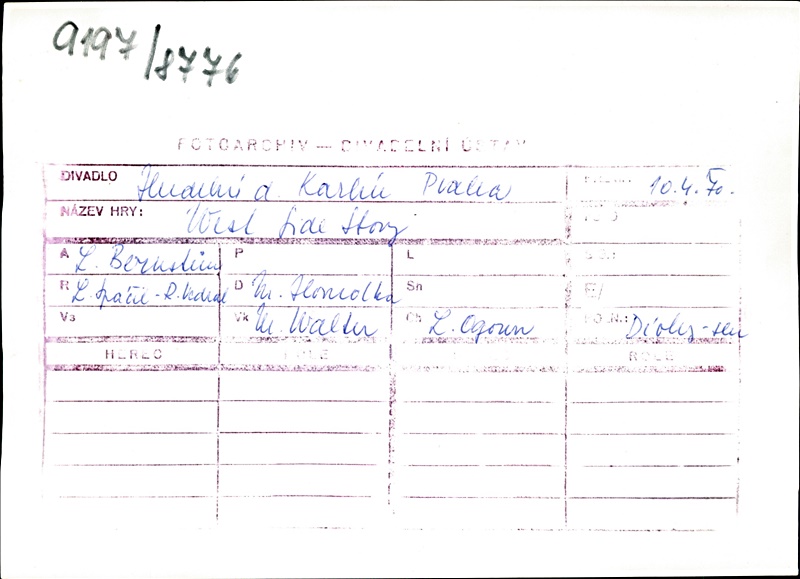 9197/8776
FOTOARCHIV — DIVADELNÍ ÚSTAV
DIVADLO Hudební d Karlín Praha 10.4.70.
NÁZEV HRY: West Side Story
A L. Bernstein P L
R L. Spáčil - R. D M. Hlomolka Sn
Vs Vk M. Walter Ch L. Ogoun
HEREC ROLE ROLE